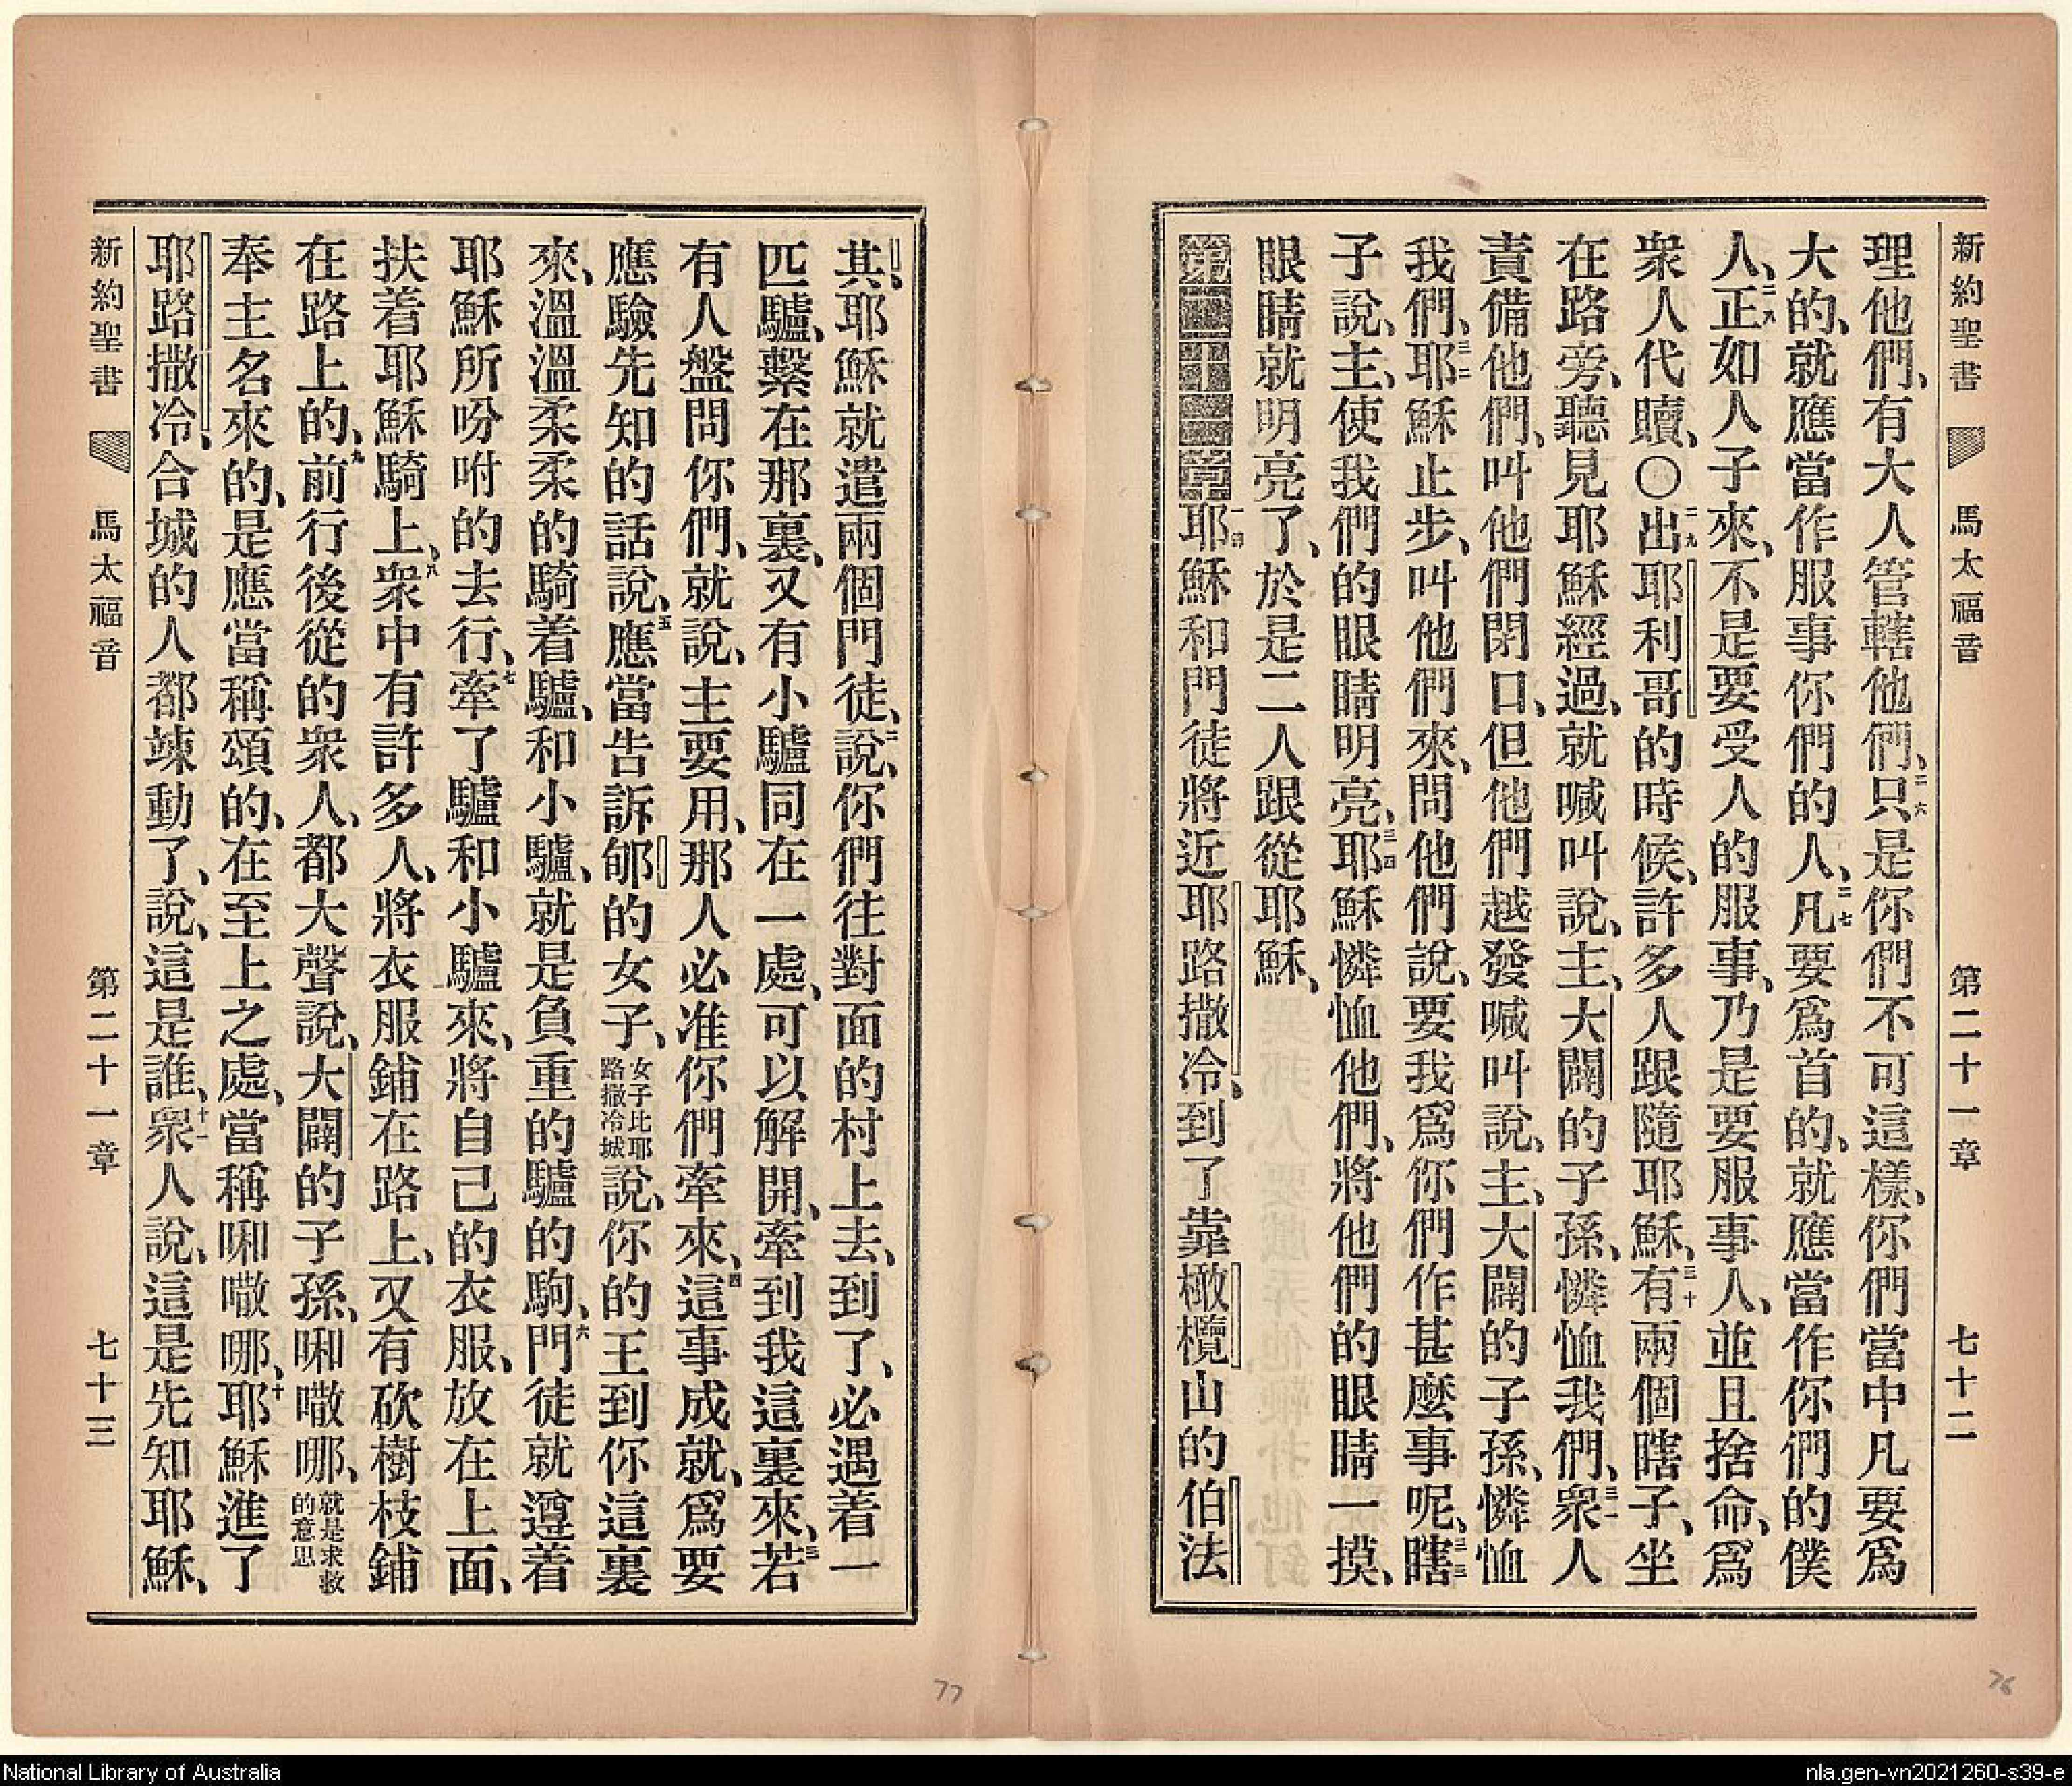 新約聖書 馬太福音 第二十一章 七十二
理他們、有大人管轄他們、二六只是你們不可這樣、你們當中凡要爲
大的、就應當作服事你們的人、二七凡要爲首的、就應當作你們的僕
人、二八正如人子來、不是要受人的服事、乃是要服事人、並且捨命、爲
衆人代贖、〇二九出耶利哥的時候、許多人跟隨耶穌、三十有兩個瞎子、坐
在路旁、聽見耶穌經過、就喊叫說、主、大闢的子孫、憐恤我們、三一衆人
責備他們、叫他們閉口、但他們越發喊叫說、主、大闢的子孫、憐恤
我們、三二耶穌止步、叫他們來、問他們說、要我爲你們作甚麼事呢、三三瞎
子說、主、使我們的眼睛明亮、三四耶穌憐恤他們、將他們的眼睛一摸、
眼睛就明亮了、於是二人跟從耶穌、
第二十一章 一耶穌和門徒將近耶路撒冷、到了靠橄欖山的伯法
其、耶穌就遣兩個門徒、二說、你們往對面的村上去、到了、必遇着一
匹驢、繫在那裏、又有小驢同在一處、可以解開、牽到我這裏來、三若
有人盤問你們、就說、主要用、那人必准你們牽來、四這事成就、爲要
應驗先知的話說、五應當告訴郇的女子、女子比耶路撒冷城說、你的王到你這裏
來、溫溫柔柔的騎着驢、和小驢、就是負重的驢的駒、六門徒就遵着
耶穌所吩咐的去行、七牽了驢和小驢來、將自己的衣服、放在上面、
扶着耶穌騎上、八衆中有許多人、將衣服鋪在路上、又有砍樹枝鋪
在路上的、九前行後從的衆人、都大聲說、大闢的子孫、㗂㘔哪、就是求救的意思
奉主名來的、是應當稱頌的、在至上之處、當稱㗂㘔哪、十耶穌進了
耶路撒冷、合城的人都竦動了、說、這是誰、十一衆人說、這是先知耶穌、
新約聖書 馬太福音 第二十一章 七十三
77
76
National Library of Australia
nla.gen-vn2021260-s39-e